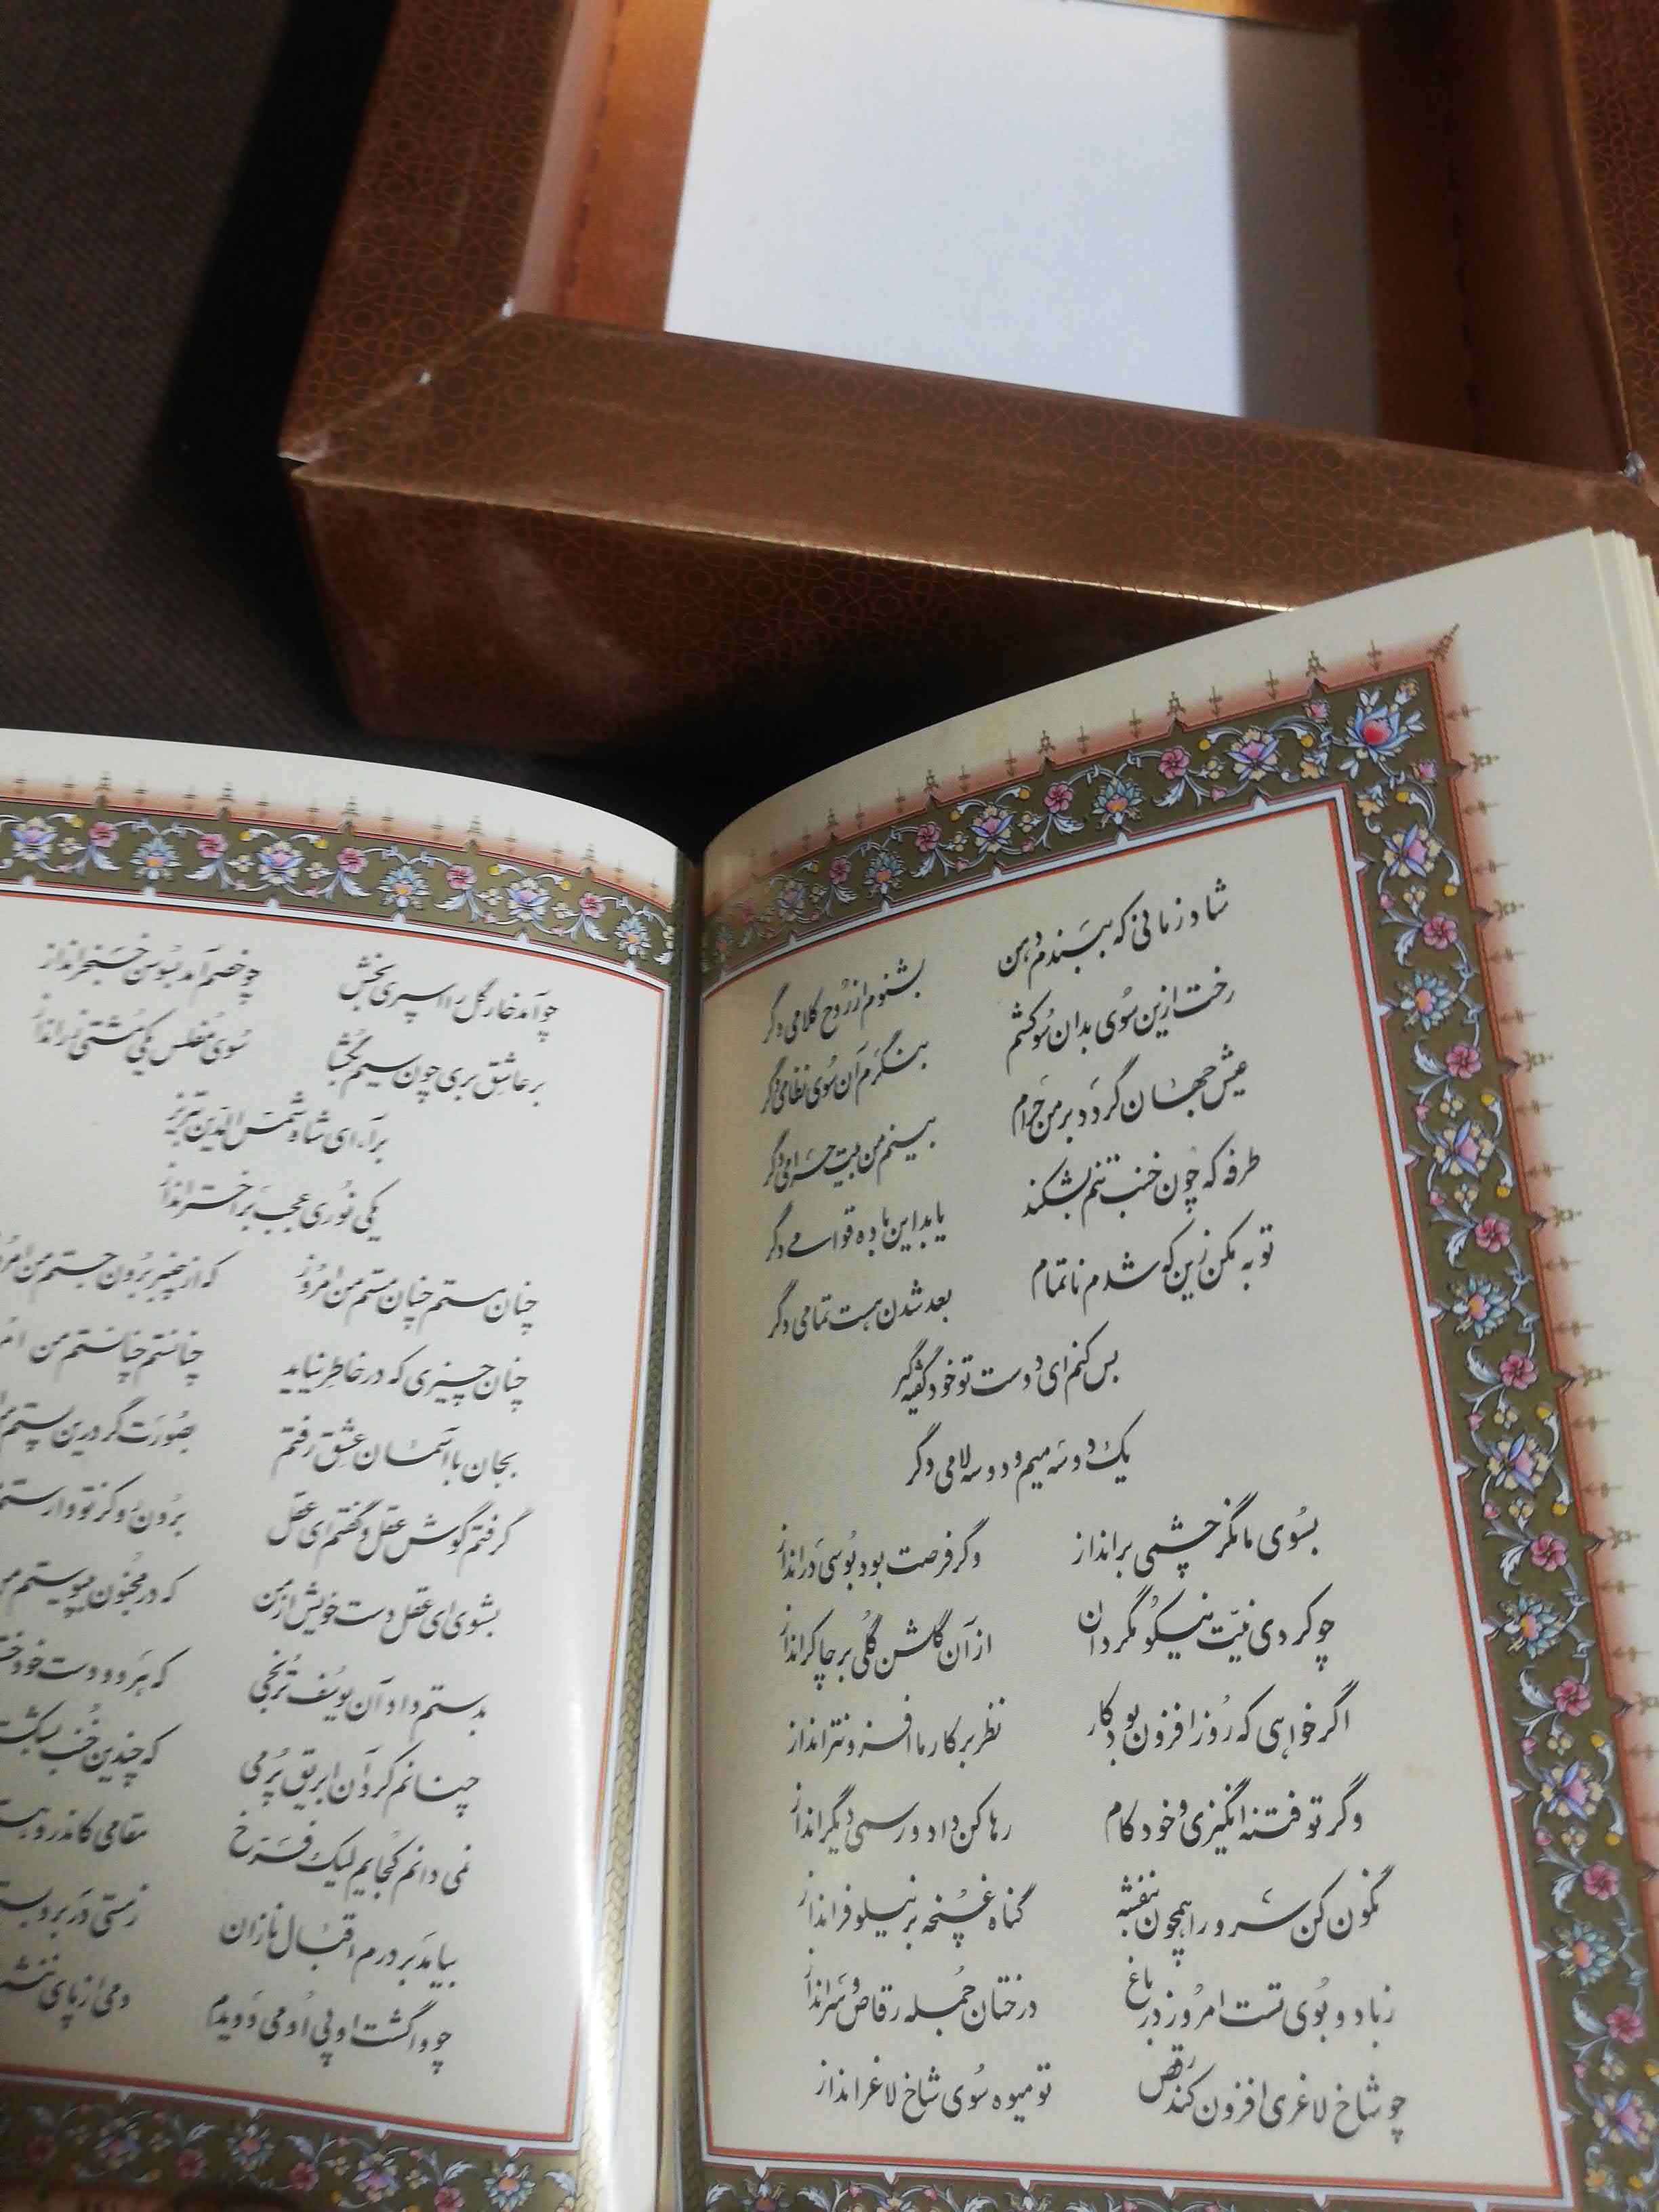 شاد زمانی که ببندم دهن بشنوم از روح کلامی دگر
رخت ازین سوی بدان سو کشم بنگرم آن سوی نظامی دگر
عیش جهان گردد بر من حرام بینم من بیت حرامی دگر
طرفه که چون خنب تنم بشکند یابد این باده قوامی دگر
توبه مکن زین که شدم ناتمام بعد شدن هست تمامی دگر
بس کنم ای دوست تو خود گفته گیر
یک دو سه میم و دو سه لامی دگر
بسوی ما نگر چشمی برانداز وگر فرصت بود بوسی درانداز
چو کردی نیت نیکو مگردان از آن گلشن گلی بر چاکر انداز
اگر خواهی که روز افزون بود کار نظر بر کار ما افزونتر انداز
وگر تو فتنه انگیزی و خودکام رها کن داد و رسمی دیگر انداز
نگون کن سرو را همچون بنفشه گناه غنچه بر نیلوفر انداز
زباد و بوی تست امروز در باغ درختان جمله رقاص و سرانداز
چو شاخ لاغری افزون کند رقص تو میوه سوی شاخ لاغر انداز
چو آمد خار گل را اسپری بخش چو خصم آمد بسوسن خنجر انداز
بر عاشق بری چون سیم بگشا سوی مفلس یکی مشتی زر انداز
برآ ای شاه شمس الدین تبریز
یکی نوری عجب بر اختر انداز
چنان مستم چنان مستم من امروز که از چنبر برون جستم من
چنان چیزی که در خاطر نیاید چنانستم چنانستم من
بجان با آسمان عشق رفتم بصورت گر درین پستم
گرفتم گوش عقل و گفتم ای عقل برون رو کز تو وارستم
بشوی ای عقل دست خویش از من که در مجنون بپیوستم
بدستم داد آن یوسف ترنجی که هر دو دست خود
چنانم کرد آن ابریق پرمی که چندین خنب
نمی دانم کجایم لیک فرخ مقامی کاندرو
بیامد بر درم اقبال نازان زمستی در برو
چو واگشت او پی او می دویدم دمی از پای